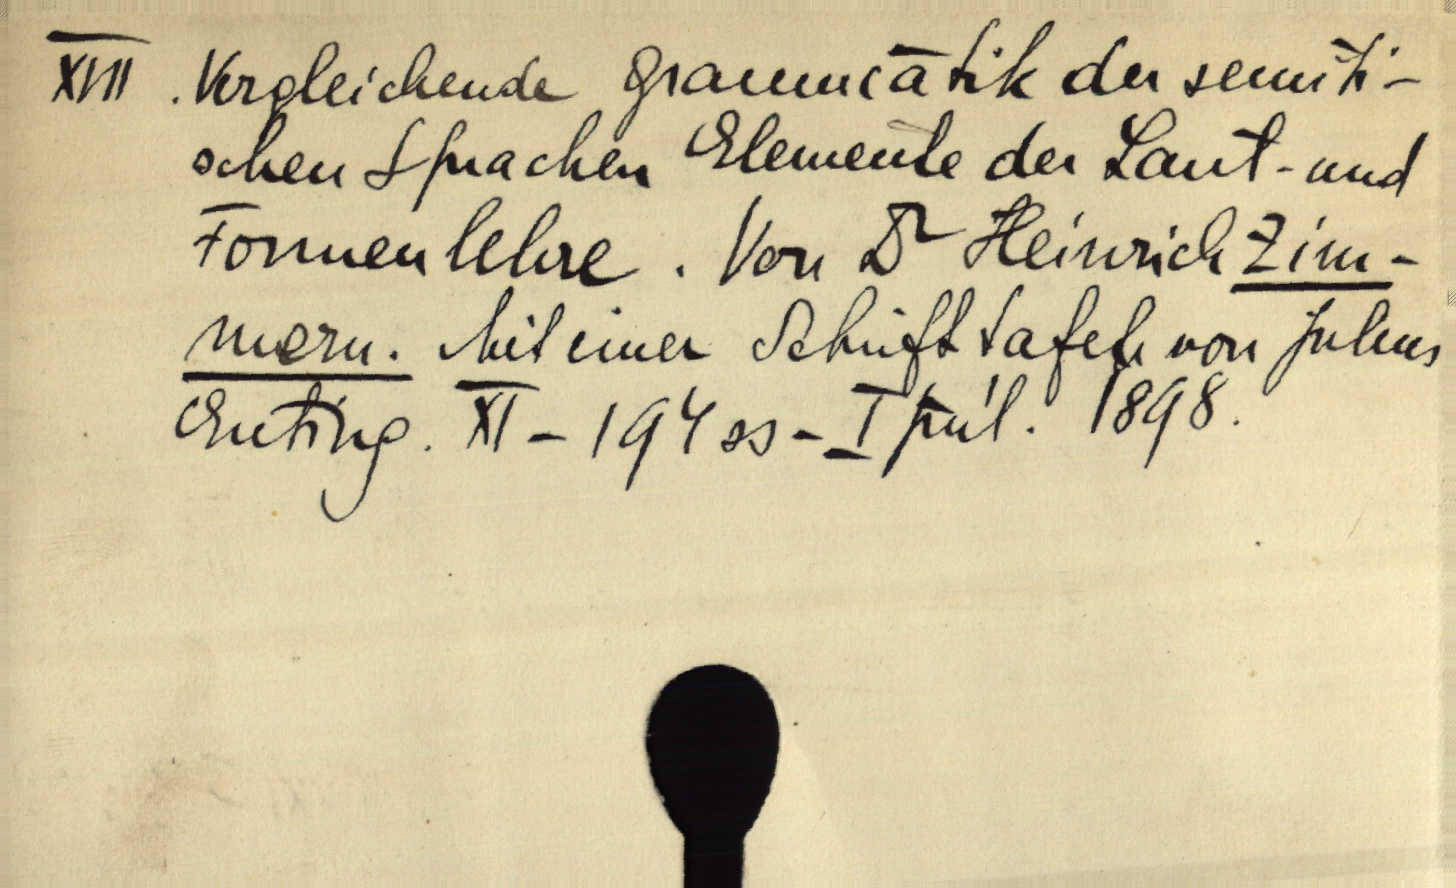 XVII. Vergleichende Grammatik der semiti-
schen Sprachen Elemente der Laut- und
Formenlehre. Von Dr Heinrich Zim-
mern. Mit einer Schrifttafel von Julius
Euting. XI - 194 ss - I príl. 1898.